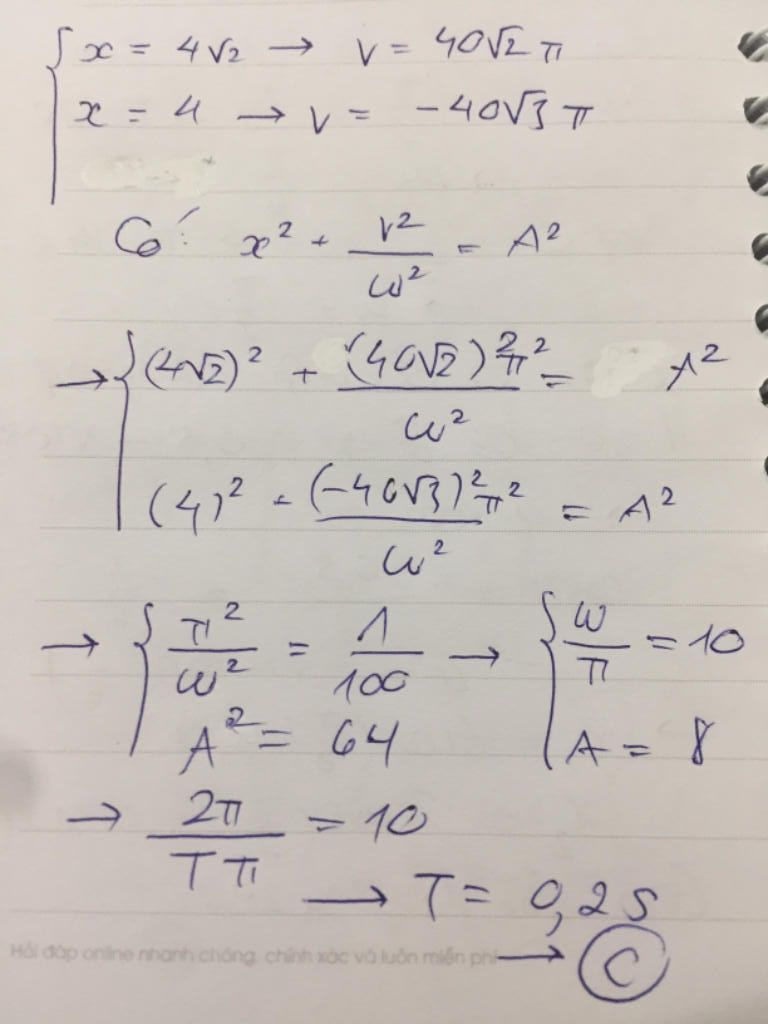 x = 4√2 → v = 40√2 π
x = 4 → v = -40√3 π
Có: x² + v²/ω² = A²
→ (4√2)² + (40√2)²π²/ω² = A²
(4)² + (-40√3)²π²/ω² = A²
→ { π²/ω² = 1/100 → { ω/π = 10
A² = 64 A = 8
→ 2π/Tπ = 10
→ T = 0,2s
Hỏi đáp online nhanh chóng, chính xác và luôn miễn phí → C